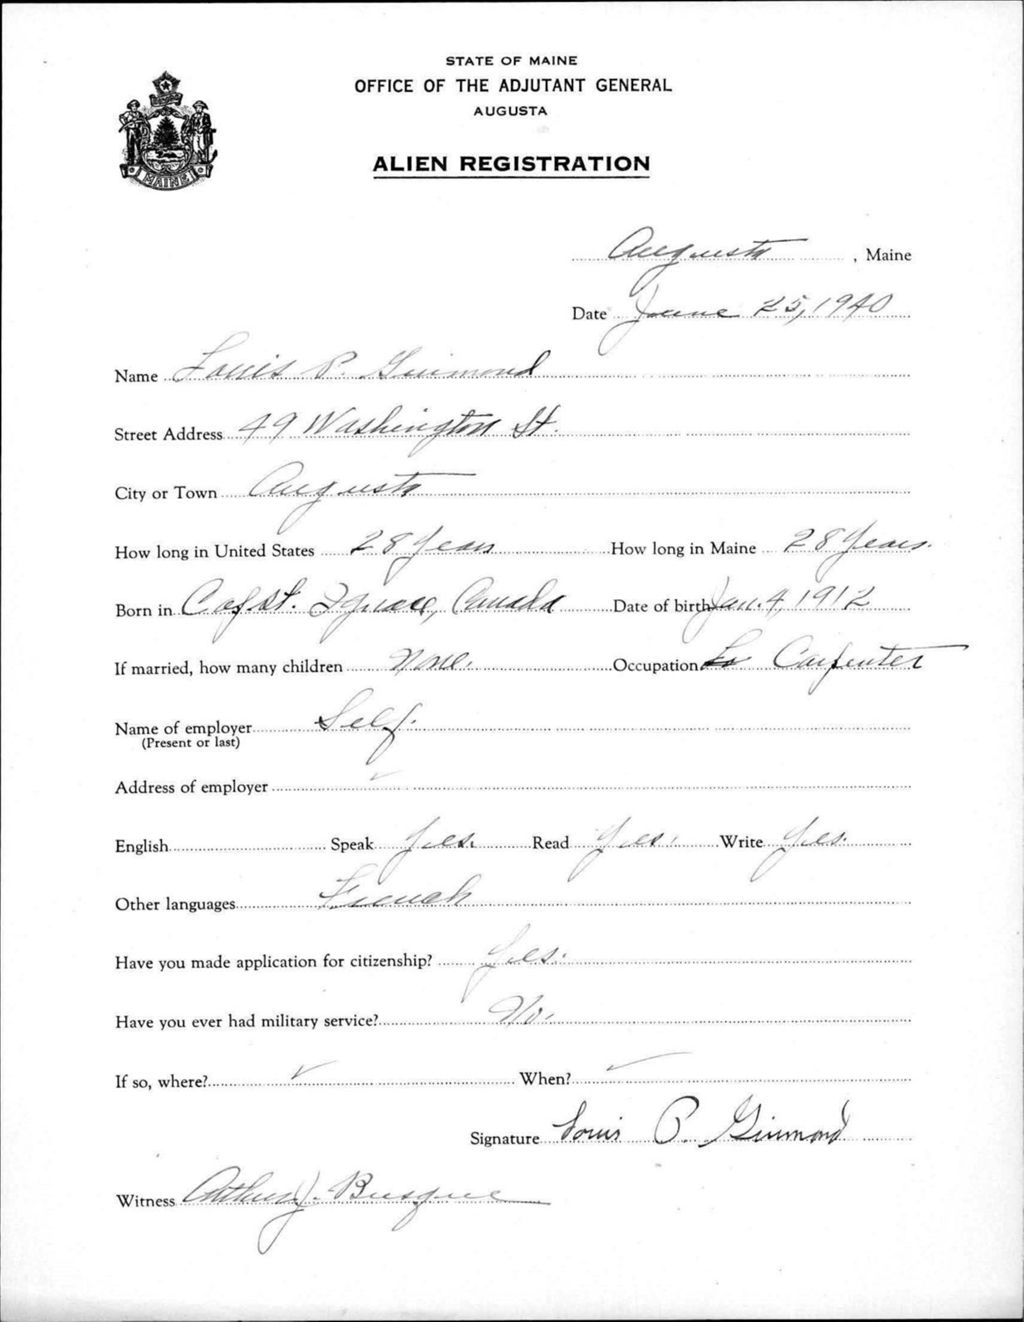 STATE OF MAINE
OFFICE OF THE ADJUTANT GENERAL
AUGUSTA
MAINE
ALIEN REGISTRATION
Augusta, Maine
Date June 25, 1940
Name Louis P. Guimond
Street Address 49 Washington St.
City or Town Augusta
How long in United States 28 Years How long in Maine 28 Years.
Born in Cap St. Ignace, Canada Date of birth Jan. 4, 1912
If married, how many children None. Occupation Carpenter
Name of employer Self.
(Present or last)
Address of employer
English Speak Yes. Read Yes. Write Yes.
Other languages French
Have you made application for citizenship? Yes.
Have you ever had military service? No.
If so, where? ✓ When?
Signature Louis P. Guimond
Witness Arthur J. Busque